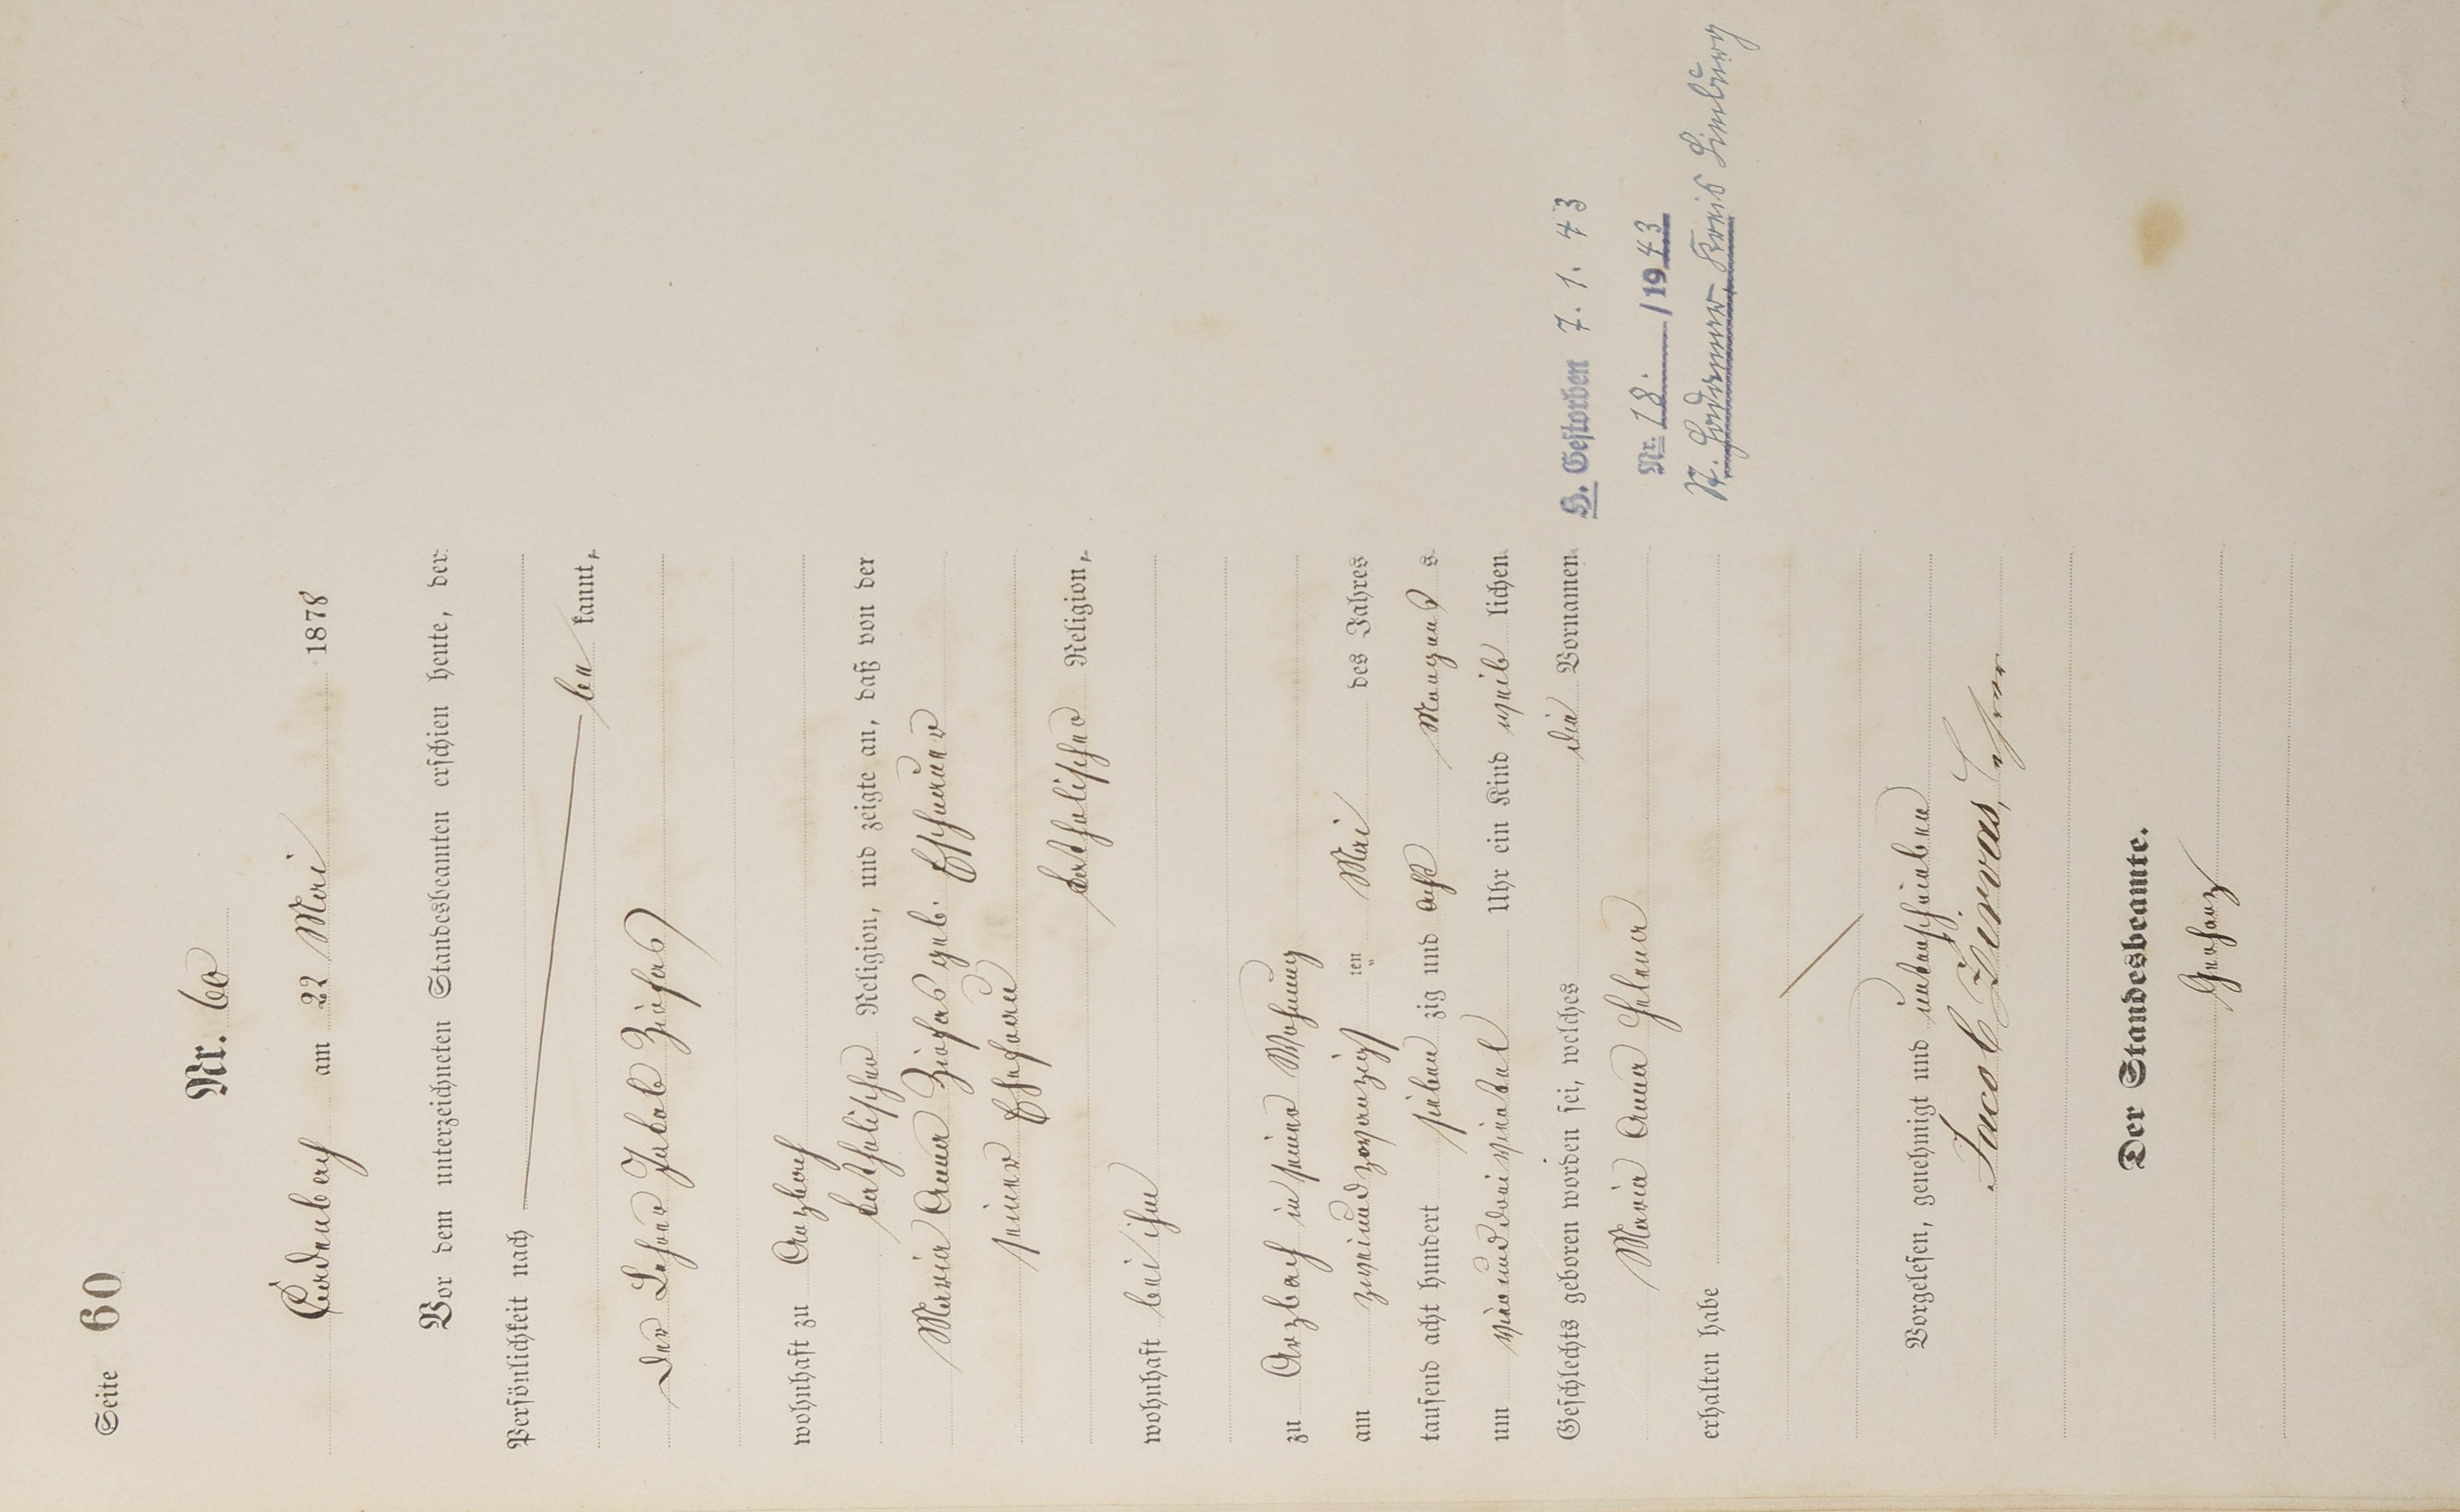 Seite 60
Nr. 60
Cadenbach am 22 Mai 1878
Vor dem unterzeichneten Standesbeamten erschien heute, der
Persönlichkeit nach
be kannt,
der Lehrer Jakob Zirfas
wohnhaft zu Arzbach
katholischer Religion, und zeigte an, daß von der
Maria Anna Zirfas geb. Eschenauer
seiner Ehefrau
katholischer Religion,
wohnhaft bei ihm
zu Arzbach in seiner Wohnung
am zweiundzwanzig ten Mai des Jahres
tausend acht hundert sieben zig und acht Morgens
um vier und drei viertel Uhr ein Kind weib lichen
Geschlechts geboren worden sei, welches die Vornamen
Maria Anna Helena
erhalten habe
Vorgelesen, genehmigt und unterschrieben
Jacob Zirvas, Lehrer
Der Standesbeamte.
Gerharz
G. Gestorben 7. 1. 43
Nr. 18. / 1943
St. Hadamar, Kreis Limburg